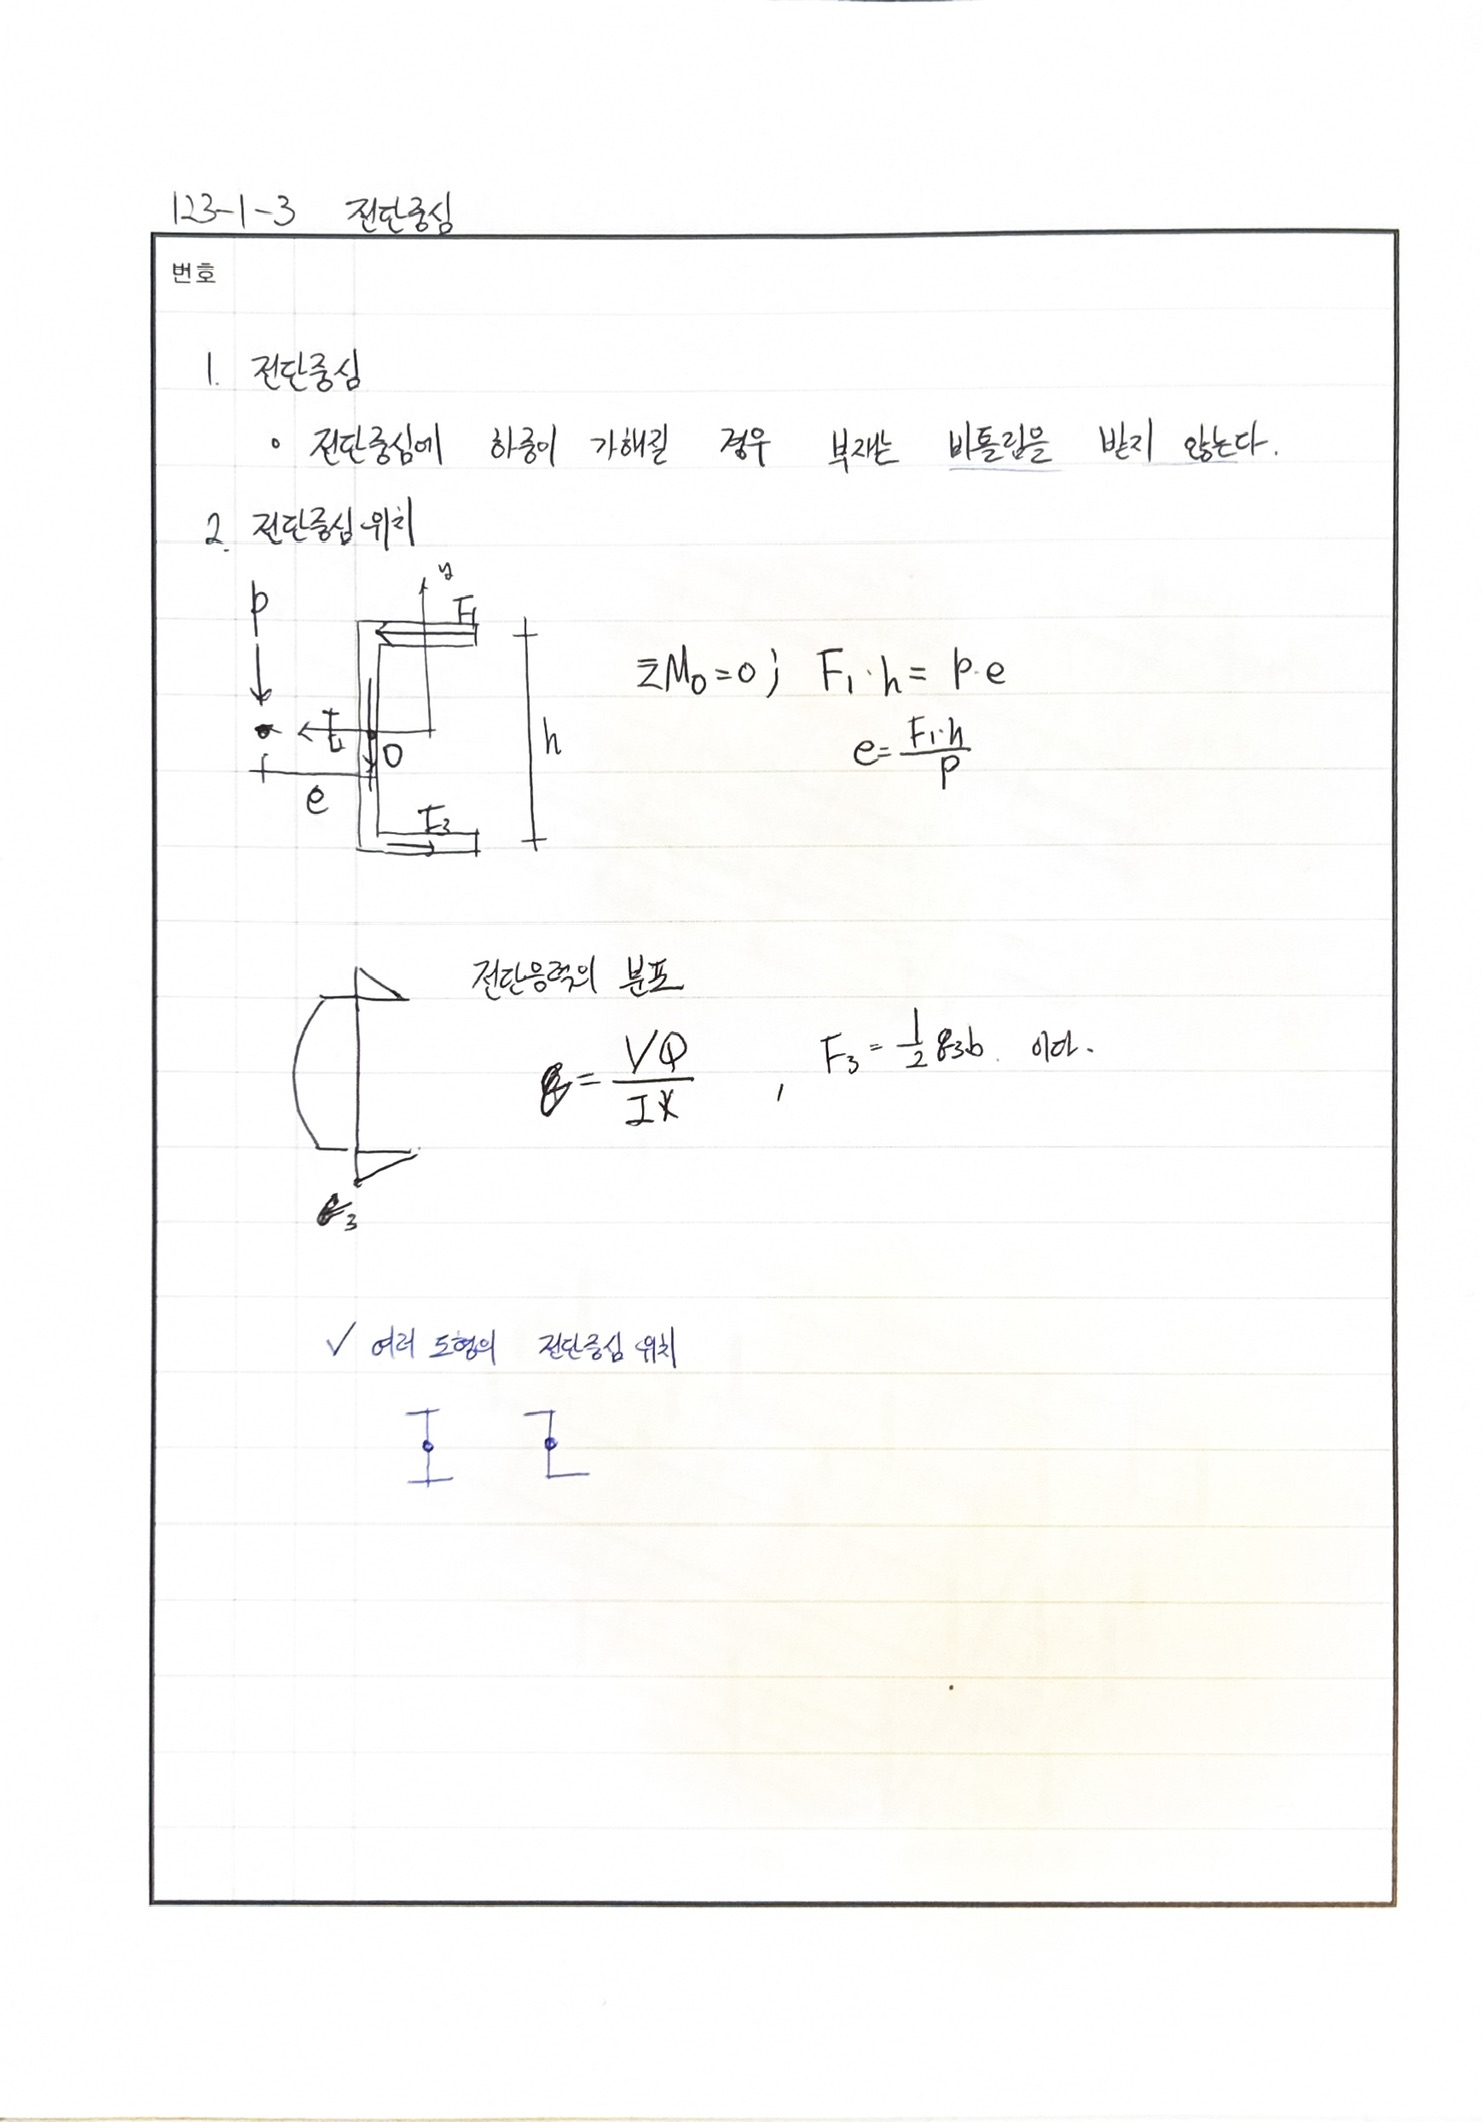 123-1-3 전단중심
번호
1. 전단중심
∘ 전단중심에 하중이 가해질 경우 부재는 비틀림을 받지 않는다.
2. 전단중심 위치
y
P
F₁
ΣM₀=0; F₁·h = P·e
O
h
e= F₁·h/P
e
F₃
전단응력의 분포
= VQ/I
, F₃ = 1/2 q₃b 이다.
₃
✓ 여러 도형의 전단중심 위치